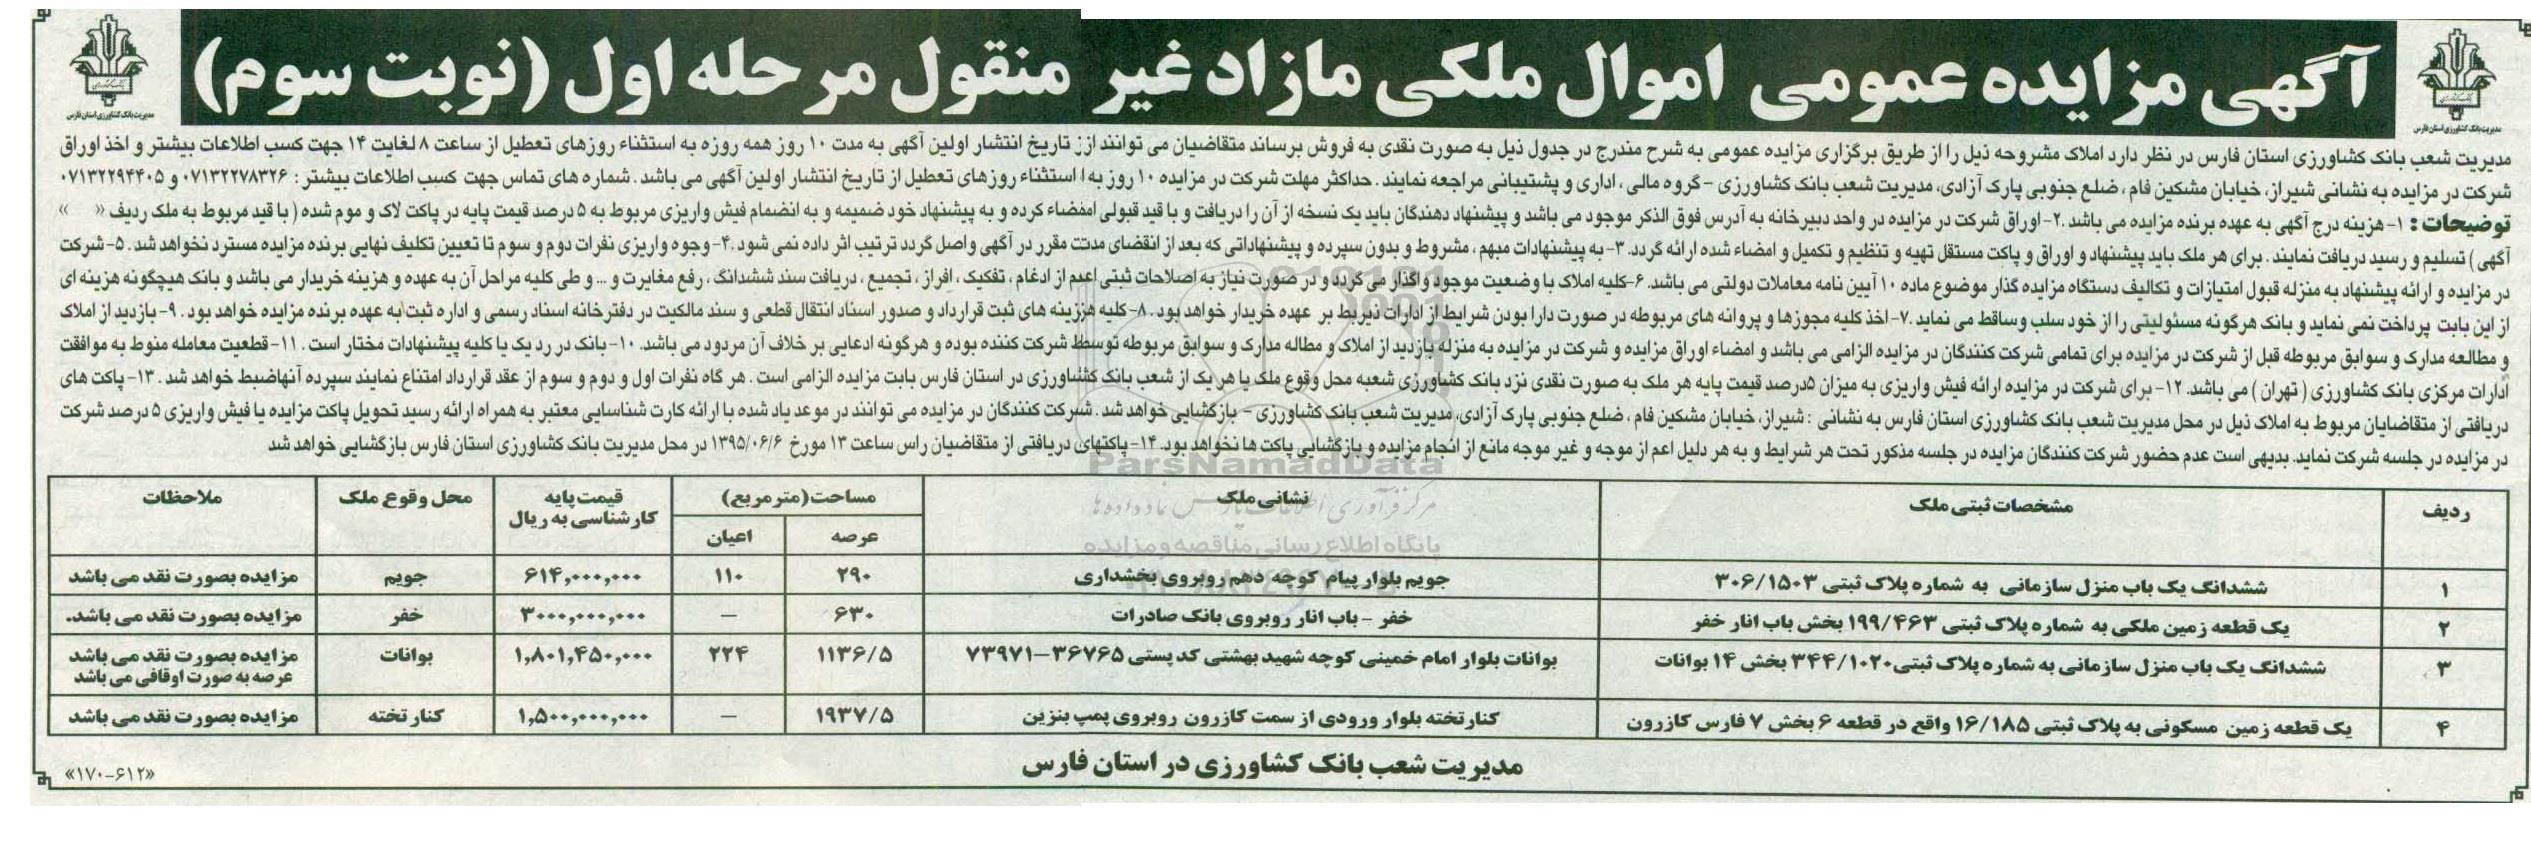 آگهی مزایده عمومی اموال ملکی مازاد غیر منقول مرحله اول (نوبت سوم)
مدیریت بانک کشاورزی استان فارس
مدیریت بانک کشاورزی استان فارس
مدیریت شعب بانک کشاورزی استان فارس در نظر دارد املاک مشروحه ذیل را از طریق برگزاری مزایده عمومی به شرح مندرج در جدول ذیل به صورت نقدی به فروش برساند متقاضیان می توانند از تاریخ انتشار اولین آگهی به مدت ۱۰ روز همه روزه به استثناء روزهای تعطیل از ساعت ۸ لغایت ۱۴ جهت کسب اطلاعات بیشتر و اخذ اوراق
شرکت در مزایده به نشانی شیراز، خیابان مشکین فام ، ضلع جنوبی پارک آزادی، مدیریت شعب بانک کشاورزی – گروه مالی ، اداری و پشتیبانی مراجعه نمایند . حداکثر مهلت شرکت در مزایده ۱۰ روز به استثناء روزهای تعطیل از تاریخ انتشار اولین آگهی می باشد . شماره های تماس جهت کسب اطلاعات بیشتر : ۰۷۱۳۲۲۷۸۳۲۶ و ۰۷۱۳۲۲۹۴۴۰۵
توضیحات : ۱- هزینه درج آگهی به عهده برنده مزایده می باشد .۲- اوراق شرکت در مزایده در واحد دبیرخانه به آدرس فوق الذکر موجود می باشد و پیشنهاد دهندگان باید یک نسخه از آن را دریافت و با قید قبولی امضاء کرده و به پیشنهاد خود ضمیمه و به انضمام فیش واریزی مربوط به ۵ درصد قیمت پایه در پاکت لاک و موم شده ( با قید مربوط به ملک ردیف « »
آگهی ) تسلیم و رسید دریافت نمایند . برای هر ملک باید پیشنهاد و اوراق و پاکت مستقل تهیه و تنظیم و تکمیل و امضاء شده ارائه گردد. ۳- به پیشنهادات مبهم ، مشروط و بدون سپرده و پیشنهاداتی که بعد از انقضای مدت مقرر در آگهی واصل گردد ترتیب اثر داده نمی شود .۴- وجوه واریزی نفرات دوم و سوم تا تعیین تکلیف نهایی برنده مزایده مسترد نخواهد شد . ۵- شرکت
در مزایده و ارائه پیشنهاد به منزله قبول امتیازات و تکالیف دستگاه مزایده گذار موضوع ماده ۱۰ آیین نامه معاملات دولتی می باشد. ۶-کلیه املاک با وضعیت موجود واگذار می گردد و در صورت نیاز به اصلاحات ثبتی اعم از ادغام ، تفکیک ، افراز ، تجمیع ، دریافت سند ششدانگ ، رفع مغایرت و ... و طی کلیه مراحل آن به عهده و هزینه خریدار می باشد و بانک هیچگونه هزینه ای
از این بابت پرداخت نمی نماید و بانک هرگونه مسئولیتی را از خود سلب وساقط می نماید .۷- اخذ کلیه مجوزها و پروانه های مربوطه در صورت دارا بودن شرایط از ادارات ذیربط بر عهده خریدار خواهد بود . ۸-کلیه هزینه های ثبت قرارداد و صدور اسناد انتقال قطعی و سند مالکیت در دفترخانه اسناد رسمی و اداره ثبت به عهده برنده مزایده خواهد بود . ۹- بازدید از املاک
و مطالعه مدارک و سوابق مربوطه قبل از شرکت در مزایده برای تمامی شرکت کنندگان در مزایده الزامی می باشد و امضاء اوراق مزایده و شرکت در مزایده به منزله بازدید از املاک و مطاله مدارک و سوابق مربوطه توسط شرکت کننده بوده و هرگونه ادعایی بر خلاف آن مردود می باشد. ۱۰- بانک در رد یک یا کلیه پیشنهادات مختار است . ۱۱- قطعیت معامله منوط به موافقت
ادارات مرکزی بانک کشاورزی ( تهران ) می باشد. ۱۲- برای شرکت در مزایده ارائه فیش واریزی به میزان ۵درصد قیمت پایه هر ملک به صورت نقدی نزد بانک کشاورزی شعبه محل وقوع ملک یا هر یک از شعب بانک کشاورزی در استان فارس بابت مزایده الزامی است . هر گاه نفرات اول و دوم و سوم از عقد قرارداد امتناع نمایند سپرده آنهاضبط خواهد شد . ۱۳- پاکت های
دریافتی از متقاضایان مربوط به املاک ذیل در محل مدیریت شعب بانک کشاورزی استان فارس به نشانی : شیراز، خیابان مشکین فام ، ضلع جنوبی پارک آزادی، مدیریت شعب بانک کشاورزی – بازگشایی خواهد شد . شرکت کنندگان در مزایده می توانند در موعد یاد شده با ارائه کارت شناسایی معتبر به همراه ارائه رسید تحویل پاکت مزایده یا فیش واریزی ۵ درصد شرکت
در مزایده در جلسه شرکت نماید. بدیهی است عدم حضور شرکت کنندگان مزایده در جلسه مذکور تحت هر شرایط و به هر دلیل اعم از موجه و غیر موجه مانع از انجام مزایده و بازگشایی پاکت ها نخواهد بود. ۱۴- پاکتهای دریافتی از متقاضیان راس ساعت ۱۳ مورخ ۱۳۹۵/۰۶/۶ در محل مدیریت بانک کشاورزی استان فارس بازگشایی خواهد شد
ParsNamadData
مرکز فرآوری اطلاعات پارس نماد داده ها
پایگاه اطلاع رسانی مناقصه و مزایده
ردیف مشخصات ثبتی ملک نشانی ملک مساحت(متر مربع) عرصه اعیان قیمت پایه کارشناسی به ریال محل وقوع ملک ملاحظات
۱ ششدانگ یک باب منزل سازمانی به شماره پلاک ثبتی ۳۰۶/۱۵۰۳ جویم بلوار پیام کوچه دهم روبروی بخشداری ۲۹۰ ۱۱۰ ۶۱۴,۰۰۰,۰۰۰ جویم مزایده بصورت نقد می باشد
۲ یک قطعه زمین ملکی به شماره پلاک ثبتی ۱۹۹/۴۶۳ بخش باب انار خفر خفر – باب انار روبروی بانک صادرات ۶۳۰ — ۳۰۰۰,۰۰۰,۰۰۰ خفر مزایده بصورت نقد می باشد.
۳ ششدانگ یک باب منزل سازمانی به شماره پلاک ثبتی۳۴۴/۱۰۲۰ بخش ۱۴ بوانات بوانات بلوار امام خمینی کوچه شهید بهشتی کد پستی ۳۶۷۶۵–۷۳۹۷۱ ۱۱۳۶/۵ ۲۲۴ ۱,۸۰۱,۴۵۰,۰۰۰ بوانات مزایده بصورت نقد می باشد عرصه به صورت اوقافی می باشد
۴ یک قطعه زمین مسکونی به پلاک ثبتی ۱۶/۱۸۵ واقع در قطعه ۶ بخش ۷ فارس کازرون کنارتخته بلوار ورودی از سمت کازرون روبروی پمپ بنزین ۱۹۳۷/۵ — ۱,۵۰۰,۰۰۰,۰۰۰ کنارتخته مزایده بصورت نقد می باشد
مدیریت شعب بانک کشاورزی در استان فارس
«۱۷۰-۶۱۲»